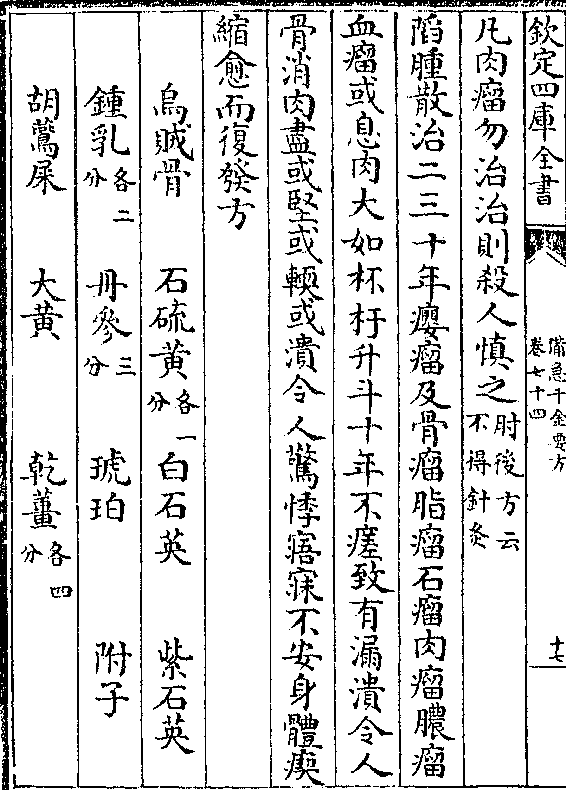 欽定四庫全書
備急千金要方
卷七十四
十七
凡肉瘤勿治治則殺人慎之肘後方云不得針灸
陷腫散治二三十年癭瘤及骨瘤脂瘤石瘤肉瘤膿瘤
血瘤或息肉大如杯杅升斗十年不瘥致有漏潰令人
骨消肉盡或堅或軟或潰令人驚悸寤寐不安身體瘈
縮愈而復發方
烏賊骨　石硫黃各一分　白石英　紫石英
鍾乳各二分　丹參三分　琥珀　附子
胡鷰屎　大黃　乾薑各四分